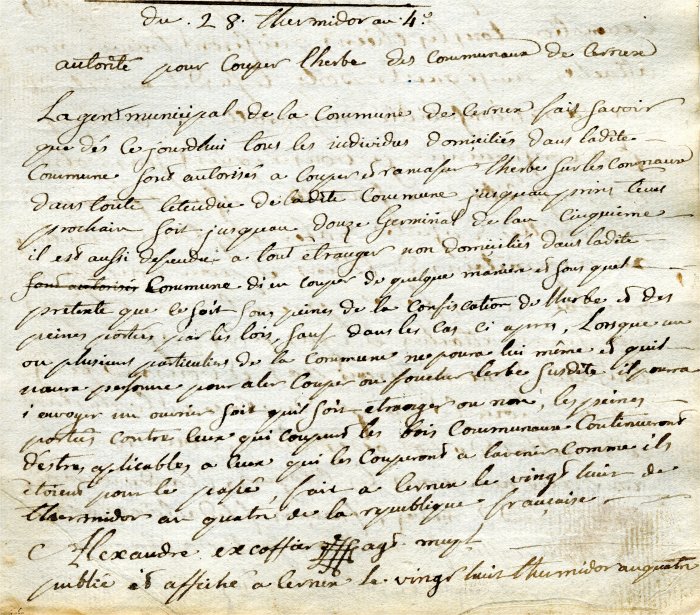 du . 28 . thermidor an 4.º
autorité pour Couper l'herbe des Communaux de Cernex
Lagent municipal de la Commune de Cernex fait savoir
que dés Ce jourdhui tous les individus domiciliés dans ladite
Commune sont autorisés a Couper et ramasser l'herbe sur les Communaux
dans toute letendue de ladite Commune jusqueau prins tems
prochain soit jusqueau douze Germinal de lan Cinquieme
il est aussi defendu a tout etranger non domiciliés dans ladite
sont autoriser Commune di en couper de quelque maniere et sous quel
pretente que ce soit sous peines de la Confiscation de lherbe et des
peines portées par les lois, sauf dans les Cas Ci apres, Lorsque un
ou plusieurs particuliers de la Commune ne poura lui même et quil
naura personne pour aler Couper ou faucher lerbe susdite il poura
i envoyer un ouvrier soit quil soit etranger ou non, les peines
portées contre Ceux qui coupent les bois Communaux Continueront
destres applicables a Ceux qui les Couperont a lavenir Comme ils
etoient pour le passé fait a Cernex le vingt huit de
thermidor an quatre de la republique francaise
C Alexandre excoffier agt mupt
publié et affiché a Cernex le vingt huit thermidor an quatre